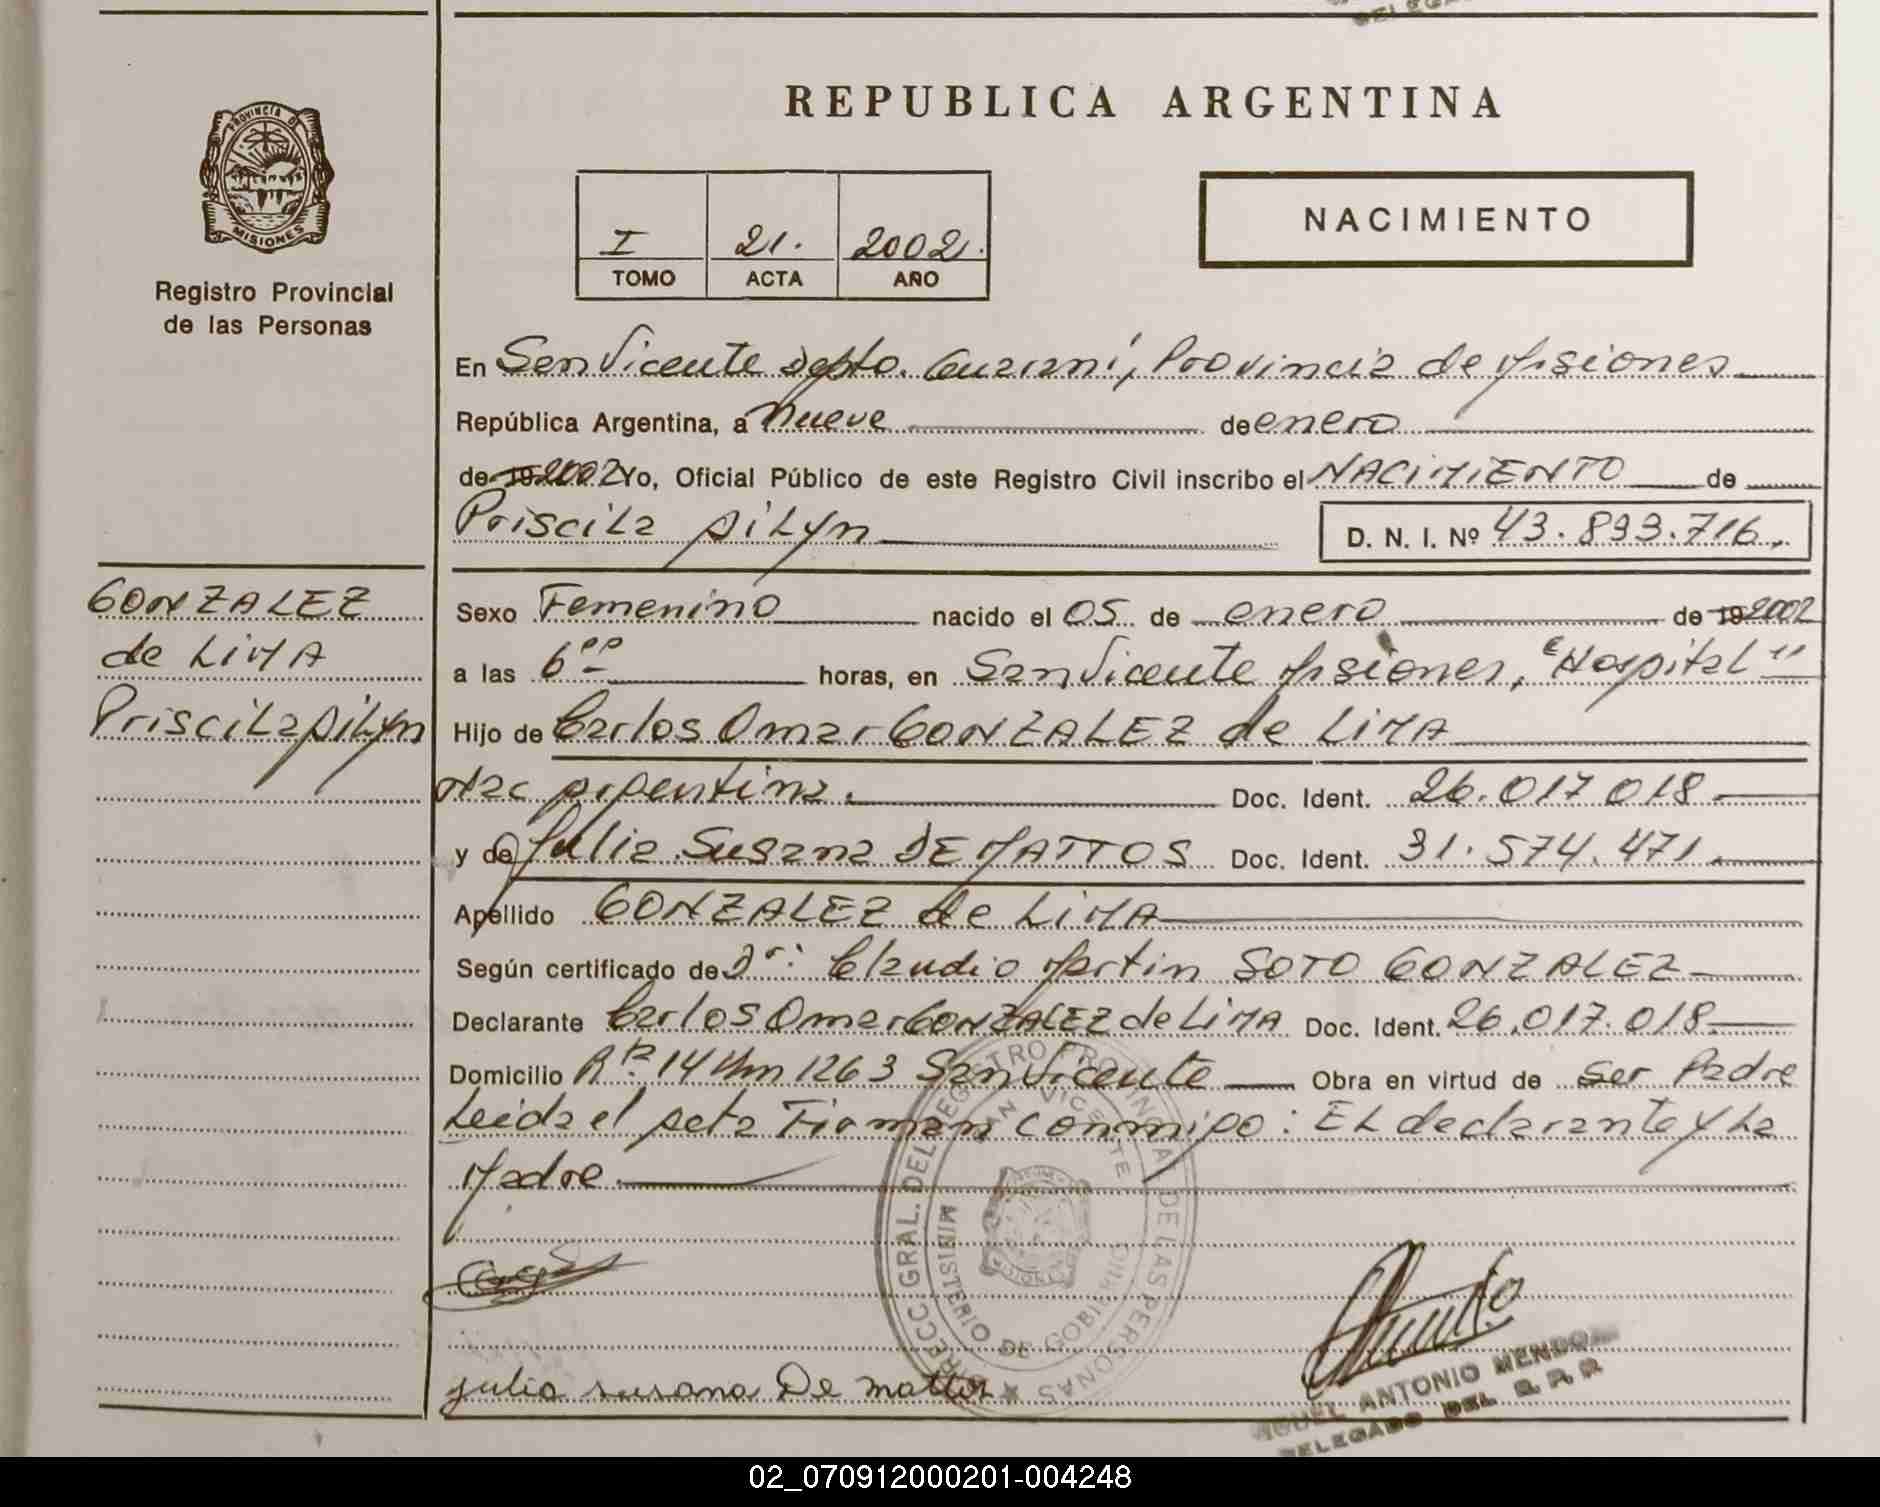 REPUBLICA ARGENTINA
PROVINCIA DE
MISIONES
Registro Provincial
de las Personas
I 21. 2002.
TOMO ACTA AÑO
NACIMIENTO
En San Vicente Depto. Guarani, Provincia de Misiones
República Argentina, a Nueve de enero
de 19 2002 Yo, Oficial Público de este Registro Civil inscribo el NACIMIENTO de
Priscila Ailyn D. N. I. Nº 43.893.716.
GONZALEZ
de LIMA
Priscila Ailyn
Sexo Femenino nacido el 05 de enero de 19 2002
a las 6 horas, en San Vicente Misiones, "Hospital"
Hijo de Carlos Omar GONZALEZ de LIMA
Nac Argentina. Doc. Ident. 26.017.018.
y de Julia Susana DE MATTOS Doc. Ident. 31.574.471.
Apellido GONZALEZ de LIMA
Según certificado de Dr: Claudio Martin SOTO GONZALEZ
Declarante Carlos Omar GONZALEZ de LIMA Doc. Ident. 26.017.018.
Domicilio Rta. 14 Km 1263 San Vicente Obra en virtud de ser Padre
Leida el acta Firman conmigo: EL declarante y La
Madre.
DIRECC GRAL. DEL REGISTRO PROVINCIAL DE LAS PERSONAS
MINISTERIO DE GOBIERNO
SAN VICENTE
MISIONES
julia susana De mattos
ANTONIO
DELEGADO DEL R. P. P.
02_070912000201-004248